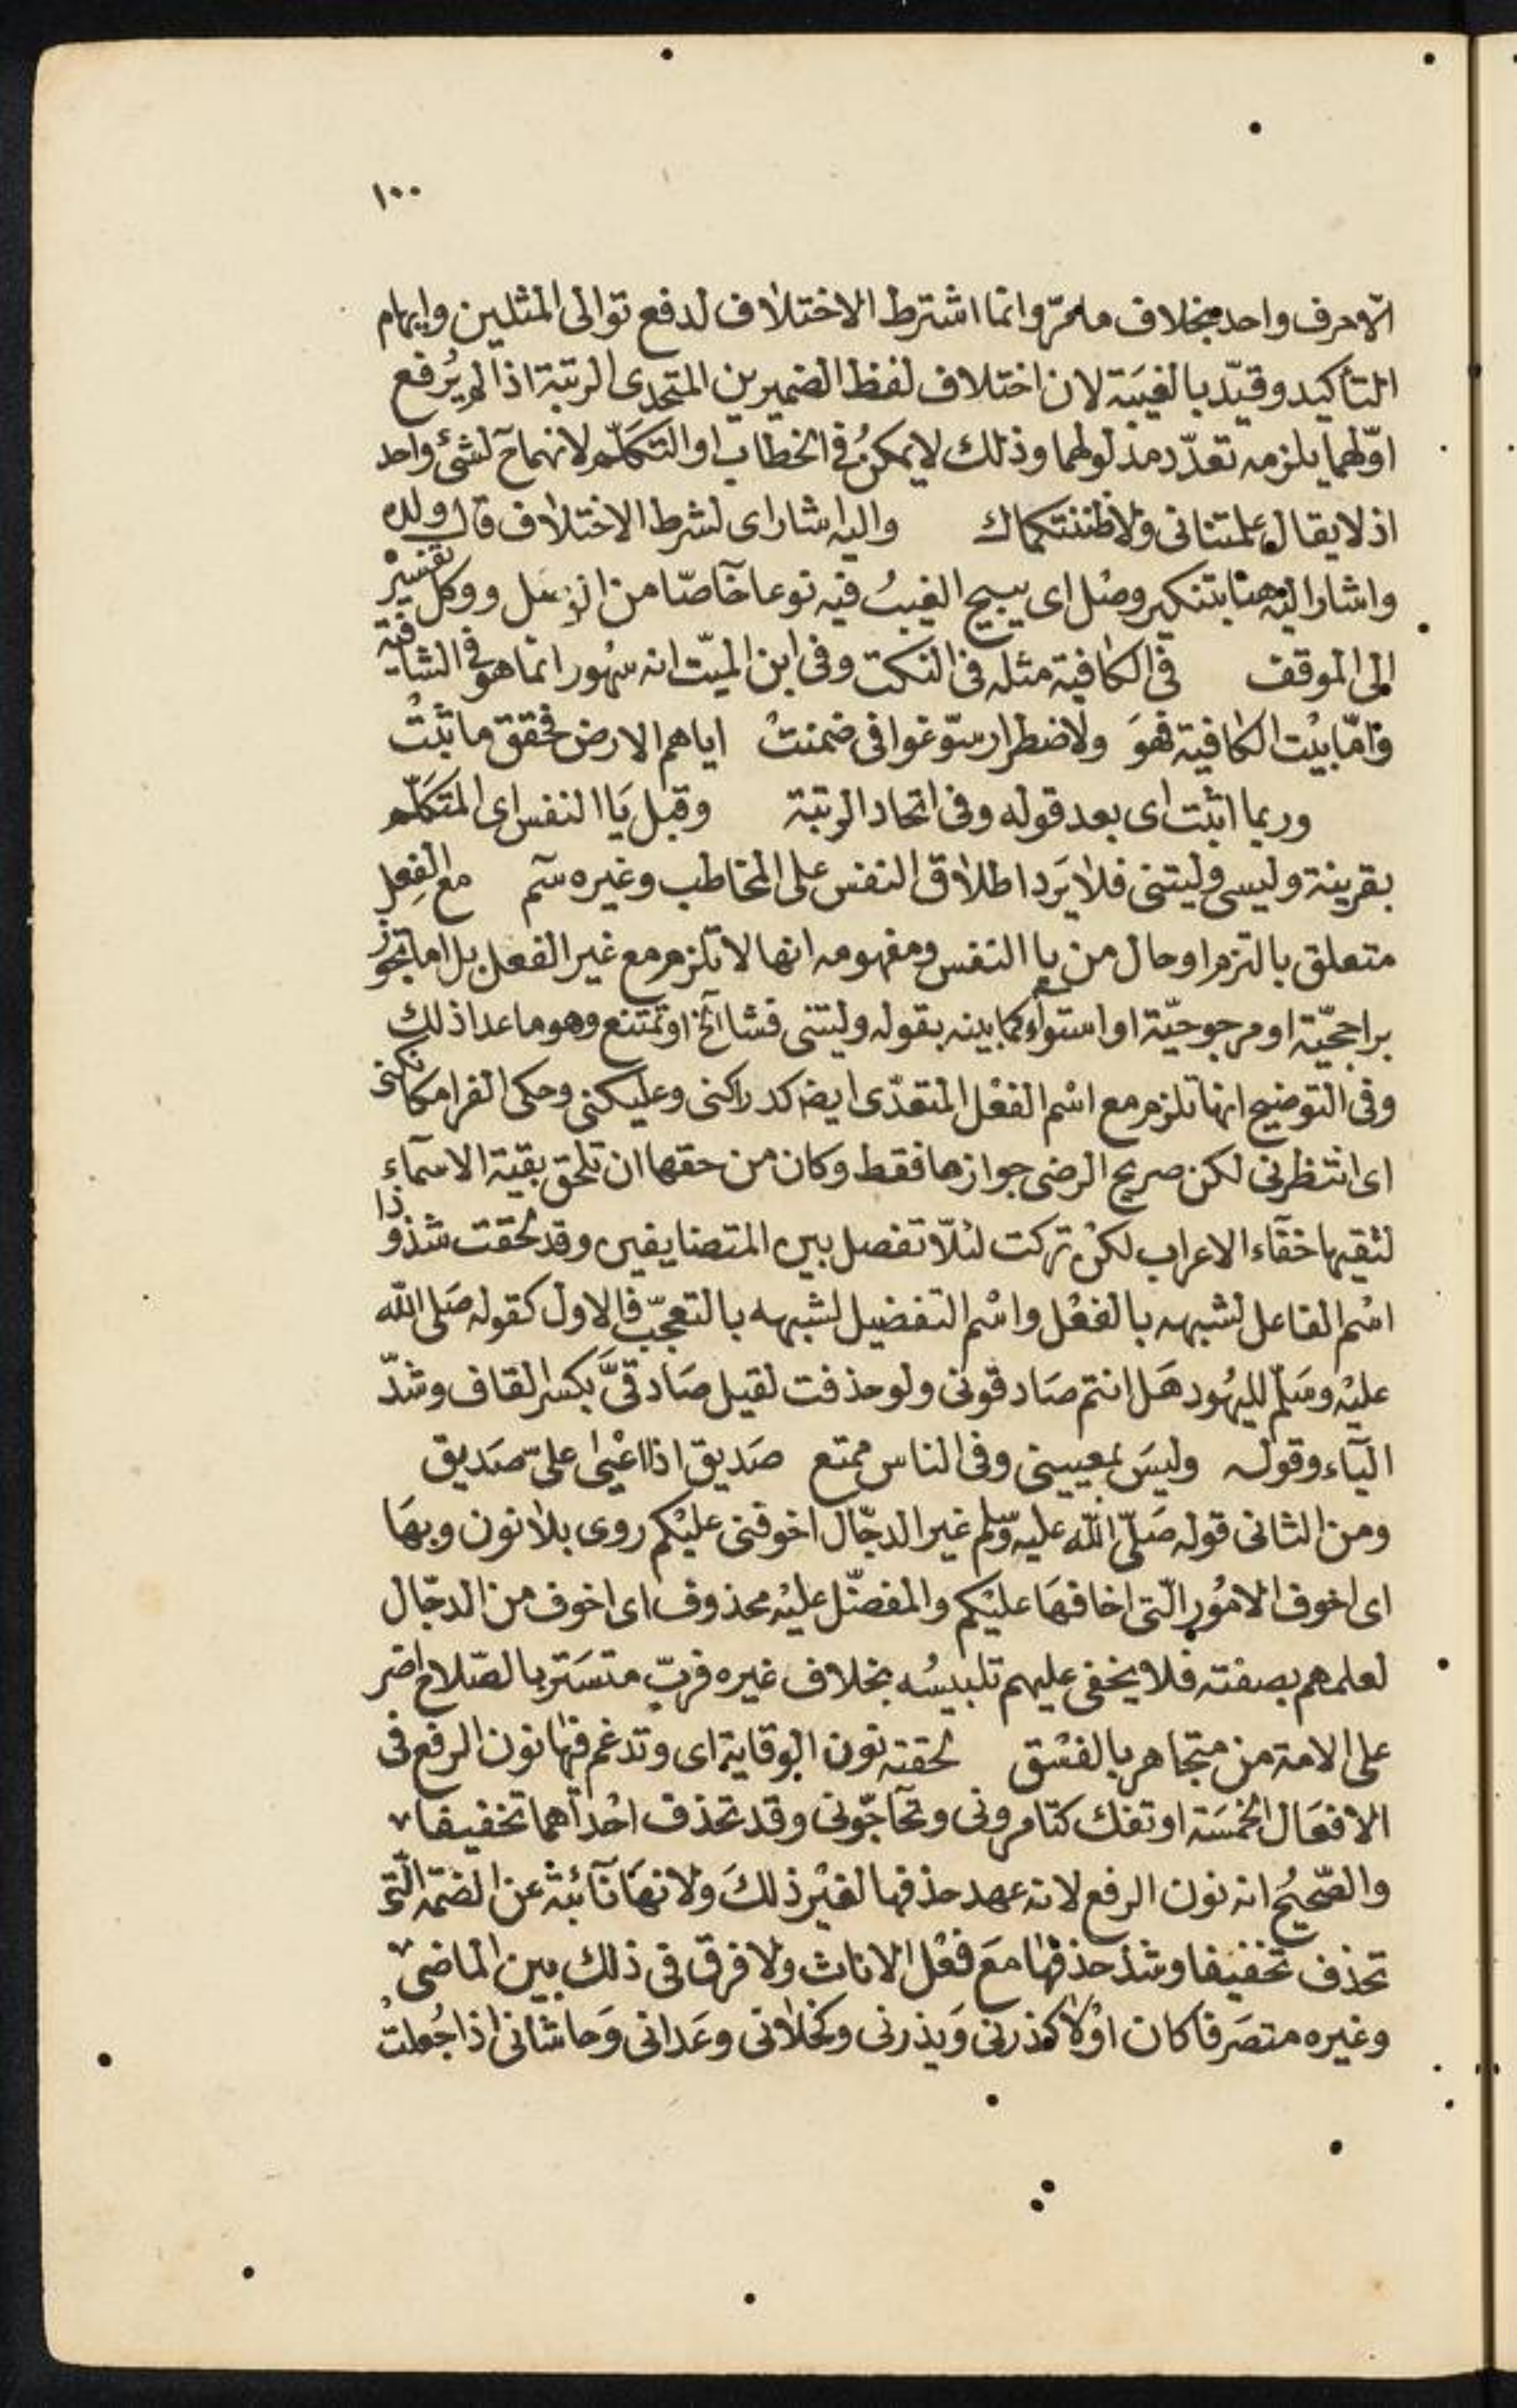 ١٠٠
الّا حرف واحد بخلاف ما مرّ وانما اشترط الاختلاف لدفع توالى المثلين وايهام
التأكيد وقيّد بالغيبة لان اختلاف لفظ الضميرين المتحدى الرتبة اذا لم يُرفع
اوّلهما يلزمه تعدّد مدلولهما وذلك لا يمكنُ فى الخطاب او التكلّم لانهما ح لشئ واحد
اذ لا يقال علمتنانى ولا ظننتكماك واليه اشار اى لشرط الاختلاف قال ولده
واشار اليه هنا بتنكير وصْل اى يبيح الغيبُ فيه نوعا خآصّا من الوصل ووكل تفسيرْ
الى الموقف فى الكافية مثله فى النكت وفى ابن الميّت انه سَهْو انما هو فى الشافية
وَامّا بيْت الكافية فهوَ ولاضطرار سوّغوا فى ضمنتْ اياهم الارض فحقق ما ثبتْ
وربما اثبت اى بعد قوله وفى اتحاد الرتبة وقبل يَا النفس اى المتكلّم
بقرينة وليسى وليتنى فلا يَرد اطلاق النفس على المخاطب وغيره سَم مع الفِعل
متعلق بالتزم او حال من يا النفس ومفهومه انها لا تلزم مع غير الفعل بل اما تجوز
براجحيّة او مرجوحيّة او استواء كما بينه بقوله وليتنى فشا الخ او تمتنع وهو ما عدا ذلك
وفى التوضيح انها تلزم مع اسْم الفعْل المتعدّى ايضا كدراكنى وعليكنى وحكى الفرا مكانكنى
اى انتظرنى لكن صريح الرضى جوازها فقط وكان من حقها ان تلحق بقية الاسمآء
لتقيها خفآء الاعراب لكن تركت لئلّا تفصل بين المتضايفين وقد لحقت شذوذا
اسْم الفاعل لشبهه بالفعْل واسْم التفضيل لشبهه بالتعجّب فالاول كقوله صَلى الله
عليْه وسَلّم لليهُود هَل انتم صَادقونى ولو حذفت لقيل صَادقىَّ بكسر القاف وشدّ
اليآء وقوله وليسَ بمعيينى وفى الناس ممتع صَديق اذا اعْيى علىّ صَديق
ومن الثانى قوله صَلّى الله عليه وسّلم غير الدجّال اخوفنى عليْكم روى بلا نون وبهَا
اى اخوف الامُور الّتى اخافهَا عليْكم والمفضّل عليْه محذوف اى اخوف من الدجّال
لعلمهم بصفته فلا يخفى عليهم تلبيسُه بخلاف غيره فربّ متسَتر بالصّلاح اضر
على الامة من متجاهر بالفسْق لحقته نون الوقاية اى وتدغم فيها نون الرفع فى
الافعَال الخمسَة او تفك كتامرونى وتحآجّونى وقد تحذف احْداهما تخفيفا
والصّحيحُ انه نون الرفع لانه عهد حذفها لغيْر ذلكَ ولانهَا نآئبة عن الضمّه الّتى
تحذف تخفيفا وشذ حذفهَا مَع فعْل الاناث ولا فرق فى ذلك بين الماضىْ
وغيره متصَرفا كان اوْلا كذرنى وَيذرنى وكخلانى وعَدانى وَحاشانى اذا جُعلتْ